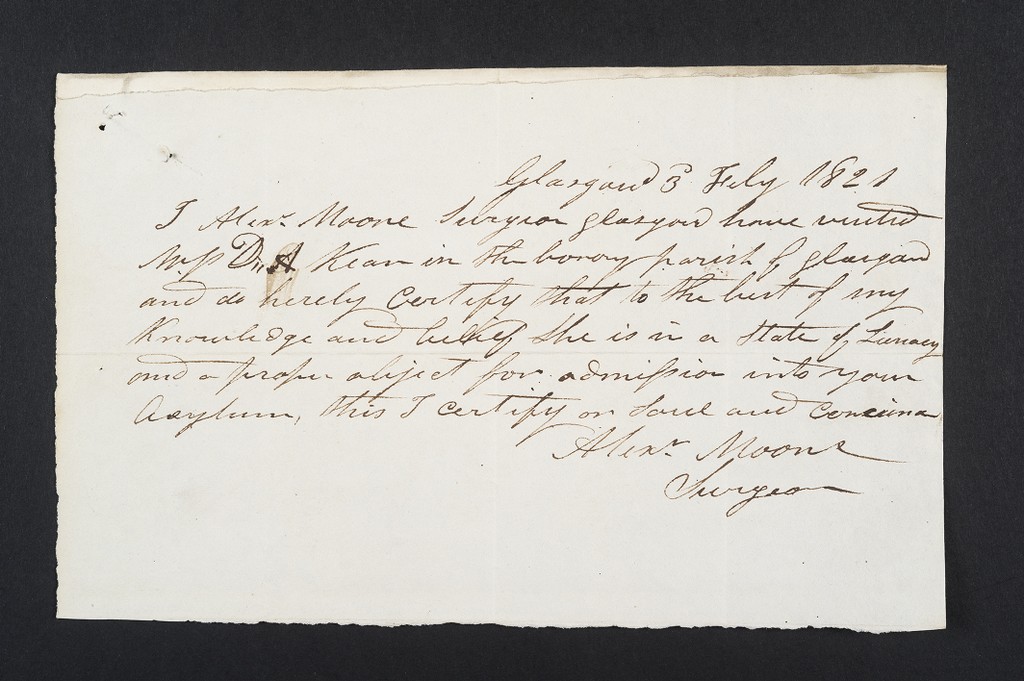 Glasgow 3d Feby 1821
I Alexr. Moore Surgeon Glasgow have visited
Kean in the barony parish of Glasgow
and do hereby Certify that to the best of my
Knowledge and belief She is in a State of Lunacy
and a proper object for admission into your
Asylum, this I certify on Soul and
Alexr. Moore
Surgeon